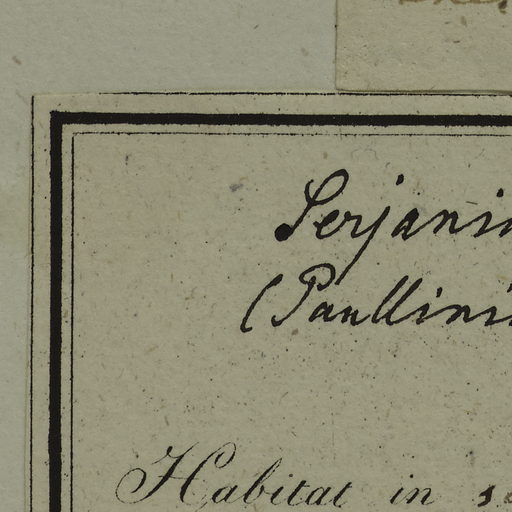 Serjani
(Paullini
Habitat in